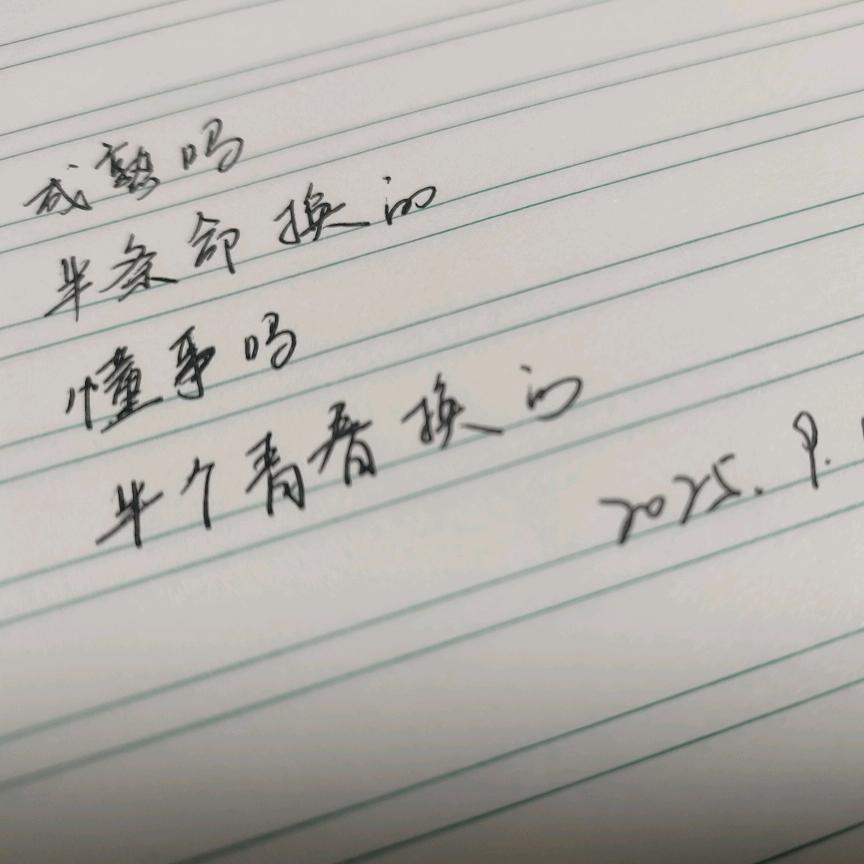 成熟吗
半条命换的
懂事吗
半个青春换的
2025.9.